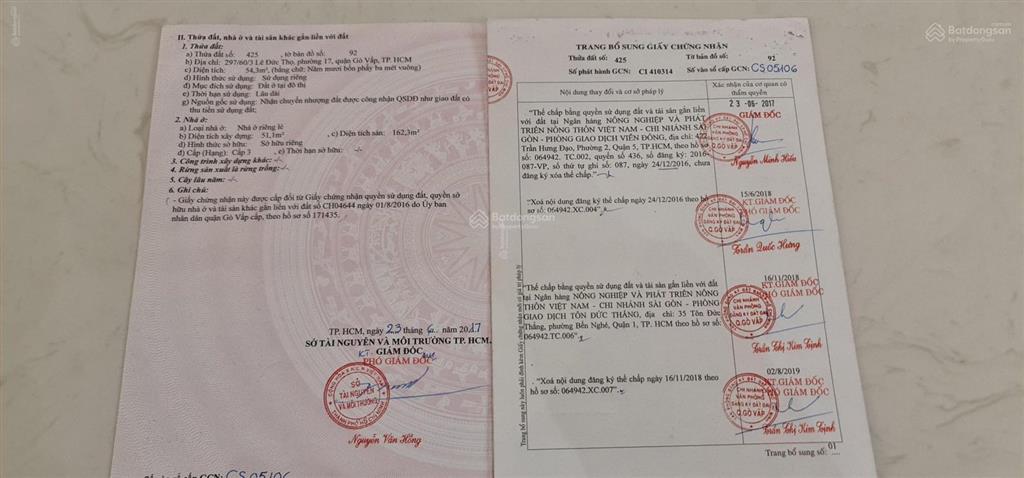 II. Thửa đất, nhà ở và tài sản khác gắn liền với đất
1. Thửa đất:
a) Thửa đất số: 425 , tờ bản đồ số: 92
b) Địa chỉ: 297/60/3 Lê Đức Thọ, phường 17, quận Gò Vấp, TP. HCM
c) Diện tích: 54,3m², (bằng chữ: Năm mươi bốn phẩy ba mét vuông)
d) Hình thức sử dụng: Sử dụng riêng
đ) Mục đích sử dụng: Đất ở tại đô thị
e) Thời hạn sử dụng: Lâu dài
g) Nguồn gốc sử dụng: Nhận chuyển nhượng đất được công nhận QSDĐ như giao đất có
thu tiền sử dụng đất;
2. Nhà ở:
a) Loại nhà ở: Nhà ở riêng lẻ
b) Diện tích xây dựng: 51,1m² , c) Diện tích sàn: 162,3m²
d) Hình thức sở hữu: Sở hữu riêng
đ) Cấp (Hạng): Cấp 3 , e) Thời hạn sở hữu: -/-
3. Công trình xây dựng khác: -/-
4. Rừng sản xuất là rừng trồng: -/-
5. Cây lâu năm: -/-
6. Ghi chú:
- Giấy chứng nhận này được cấp đổi từ Giấy chứng nhận quyền sử dụng đất, quyền sở
hữu nhà ở và tài sản khác gắn liền với đất số CH04644 ngày 01/8/2016 do Ủy ban
nhân dân quận Gò Vấp cấp, theo hồ sơ số 171435.
TP. HCM, ngày 23 tháng 6 năm 2017
SỞ TÀI NGUYÊN VÀ MÔI TRƯỜNG TP. HCM
KT. GIÁM ĐỐC
PHÓ GIÁM ĐỐC
SỞ
TÀI NGUYÊN
VÀ MÔI TRƯỜNG
Nguyễn Văn Hồng
CS05106
TRANG BỔ SUNG GIẤY CHỨNG NHẬN
Thửa đất số: 425 Tờ bản đồ số: 92
Số phát hành GCN: CI 410314 Số vào sổ cấp GCN: CS05106
Nội dung thay đổi và cơ sở pháp lý
Xác nhận của cơ quan có
thẩm quyền
"Thế chấp bằng quyền sử dụng đất và tài sản gắn liền với
đất tại Ngân hàng NÔNG NGHIỆP VÀ PHÁT
TRIỂN NÔNG THÔN VIỆT NAM - CHI NHÁNH SÀI
GÒN - PHÒNG GIAO DỊCH VIỄN ĐÔNG, địa chỉ: 422
Trần Hưng Đạo, Phường 2, Quận 5, TP.HCM, theo hồ sơ
số: 064942. TC.002, quyển số 436, số đăng ký: 2016-
087-VP, số thứ tự ghi sổ: 087, ngày 24/12/2016, chưa
đăng ký xóa thế chấp."
23 -06- 2017
GIÁM ĐỐC
CHI NHÁNH
VĂN PHÒNG
ĐĂNG KÝ ĐẤT ĐAI
Q.GÒ VẤP
Nguyễn Minh Hiếu
"Xoá nội dung đăng ký thế chấp ngày 24/12/2016 theo hồ
sơ số: 064942.XC.004"
15/6/2018
KT.GIÁM ĐỐC
PHÓ GIÁM ĐỐC
CHI NHÁNH
VĂN PHÒNG
ĐĂNG KÝ ĐẤT ĐAI
Q.GÒ VẤP
Trần Quốc Hưng
"Thế chấp bằng quyền sử dụng đất và tài sản gắn liền với đất
tại Ngân hàng NÔNG NGHIỆP VÀ PHÁT TRIỂN NÔNG
THÔN VIỆT NAM - CHI NHÁNH SÀI GÒN - PHÒNG
GIAO DỊCH TÔN ĐỨC THẮNG, địa chỉ: 35 Tôn Đức
Thắng, phường Bến Nghé, Quận 1, TP. HCM theo hồ sơ số:
064942.TC.006"
16/11/2018
KT.GIÁM ĐỐC
PHÓ GIÁM ĐỐC
CHI NHÁNH
VĂN PHÒNG
ĐĂNG KÝ ĐẤT ĐAI
Q.GÒ VẤP
Trần Thị Kim Định
"Xoá nội dung đăng ký thế chấp ngày 16/11/2018 theo
hồ sơ số: 064942.XC.007"
02/8/2019
KT.GIÁM ĐỐC
PHÓ GIÁM ĐỐC
CHI NHÁNH
VĂN PHÒNG
ĐĂNG KÝ ĐẤT ĐAI
Q.GÒ VẤP
Trần Thị Kim Định
Trang bổ sung số: 01
Batdongsan
by PropertyGuru
Batdongsan
by PropertyGuru